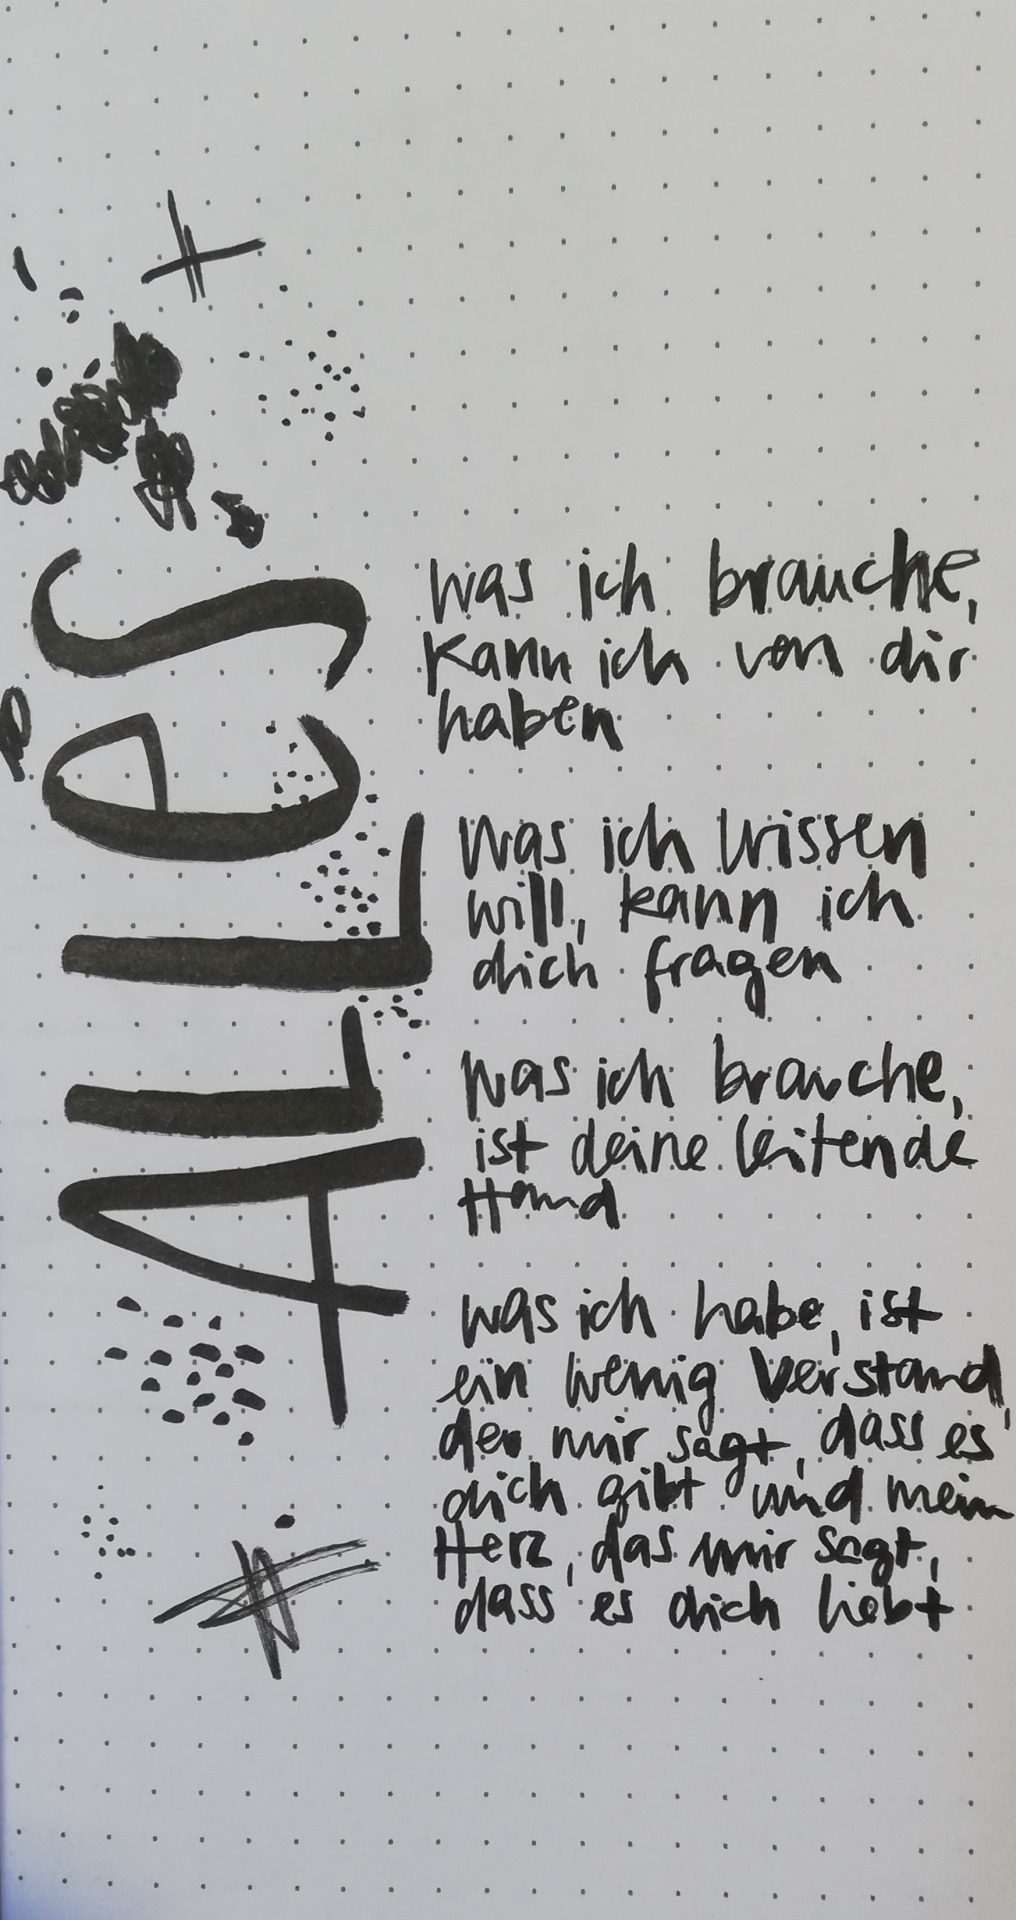 ALLes
was ich brauche,
kann ich von dir
haben
was ich wissen
will, kann ich
dich fragen
was ich brauche,
ist deine leitende
Hand
was ich habe, ist
ein wenig Verstand,
der mir sagt, dass es
dich gibt und mein
Herz, das mir sagt,
dass es dich liebt